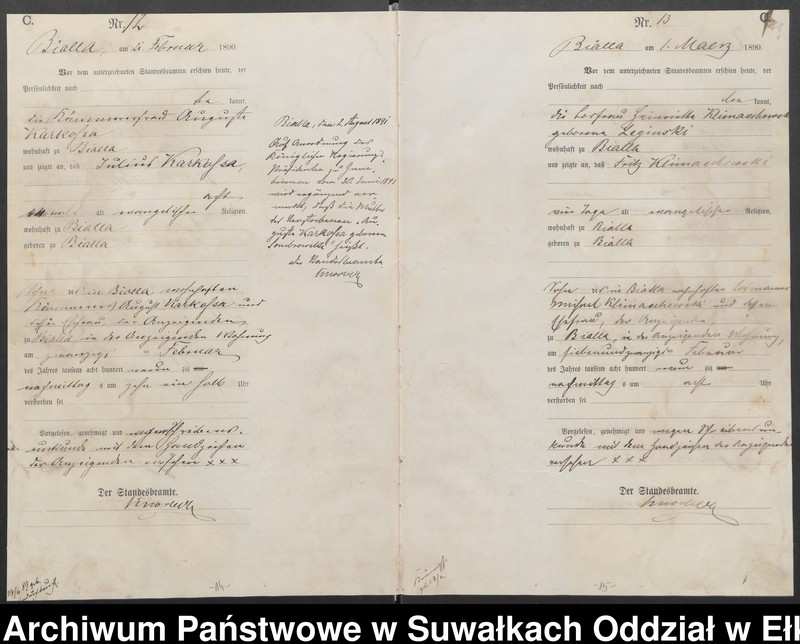 C.
Nr. 12
Bialla, am 21 Februar 1890.
Vor dem unterzeichneten Standesbeamten erschien heute, der
Persönlichkeit nach
kannt,
die Kämmerersfrau Auguste
Karkossa
wohnhaft zu Bialla
und zeigte an, daß Julius Karkossa,
acht
alt evangelischer Religion,
wohnhaft zu Bialla
geboren zu Bialla
Sohn des in Bialla wohnhaften
Kämmerers August Karkossa und
Ehefrau, der Anzeigenden,
zu Bialla in der Anzeigenden Wohnung
am zwanzigsten Februar
des Jahres tausend acht hundert neunzig
nachmittag s um zehn ein halb Uhr
verstorben sei
Vorgelesen, genehmigt und
urkunde mit dem Handzeichen
der Anzeigenden versehen x x x
Der Standesbeamte.
Bialla, den 2. August 1891
Auf Anordnung des
Königlichen Regierungs-
Präsidenten zu
vom 30. Juni 1891
wird ergänzend ver-
merkt, daß die Mutter
des Verstorbenen „Au-
guste Karkossa geborene
heißt.
der Standesbeamte
-14-
Nr. 13
C.
Bialla am 1. Maerz 1890.
Vor dem unterzeichneten Standesbeamten erschien heute, der
Persönlichkeit nach
kannt,
die Losfrau Heinriette Klimaschewski
geborene Leginski
wohnhaft zu Bialla
und zeigte an, daß Fritz Klimaschewski
vier Tage alt evangelischer Religion,
wohnhaft zu Bialla
geboren zu Bialla
Sohn des in Bialla wohnhaften Losmanns
Michael Klimaschewski und dessen
Ehefrau, der Anzeigenden
zu Bialla, in der Anzeigenden Wohnung,
am siebenundzwanzigsten Februar
des Jahres tausend acht hundert neunzig
nachmittag s um acht Uhr
verstorben sei
Vorgelesen, genehmigt und wegen Schreibens un-
kunde mit dem Handzeichen der Anzeigenden
versehen x x x
Der Standesbeamte.
-15-
Archiwum Państwowe w Suwałkach Oddział w Eł